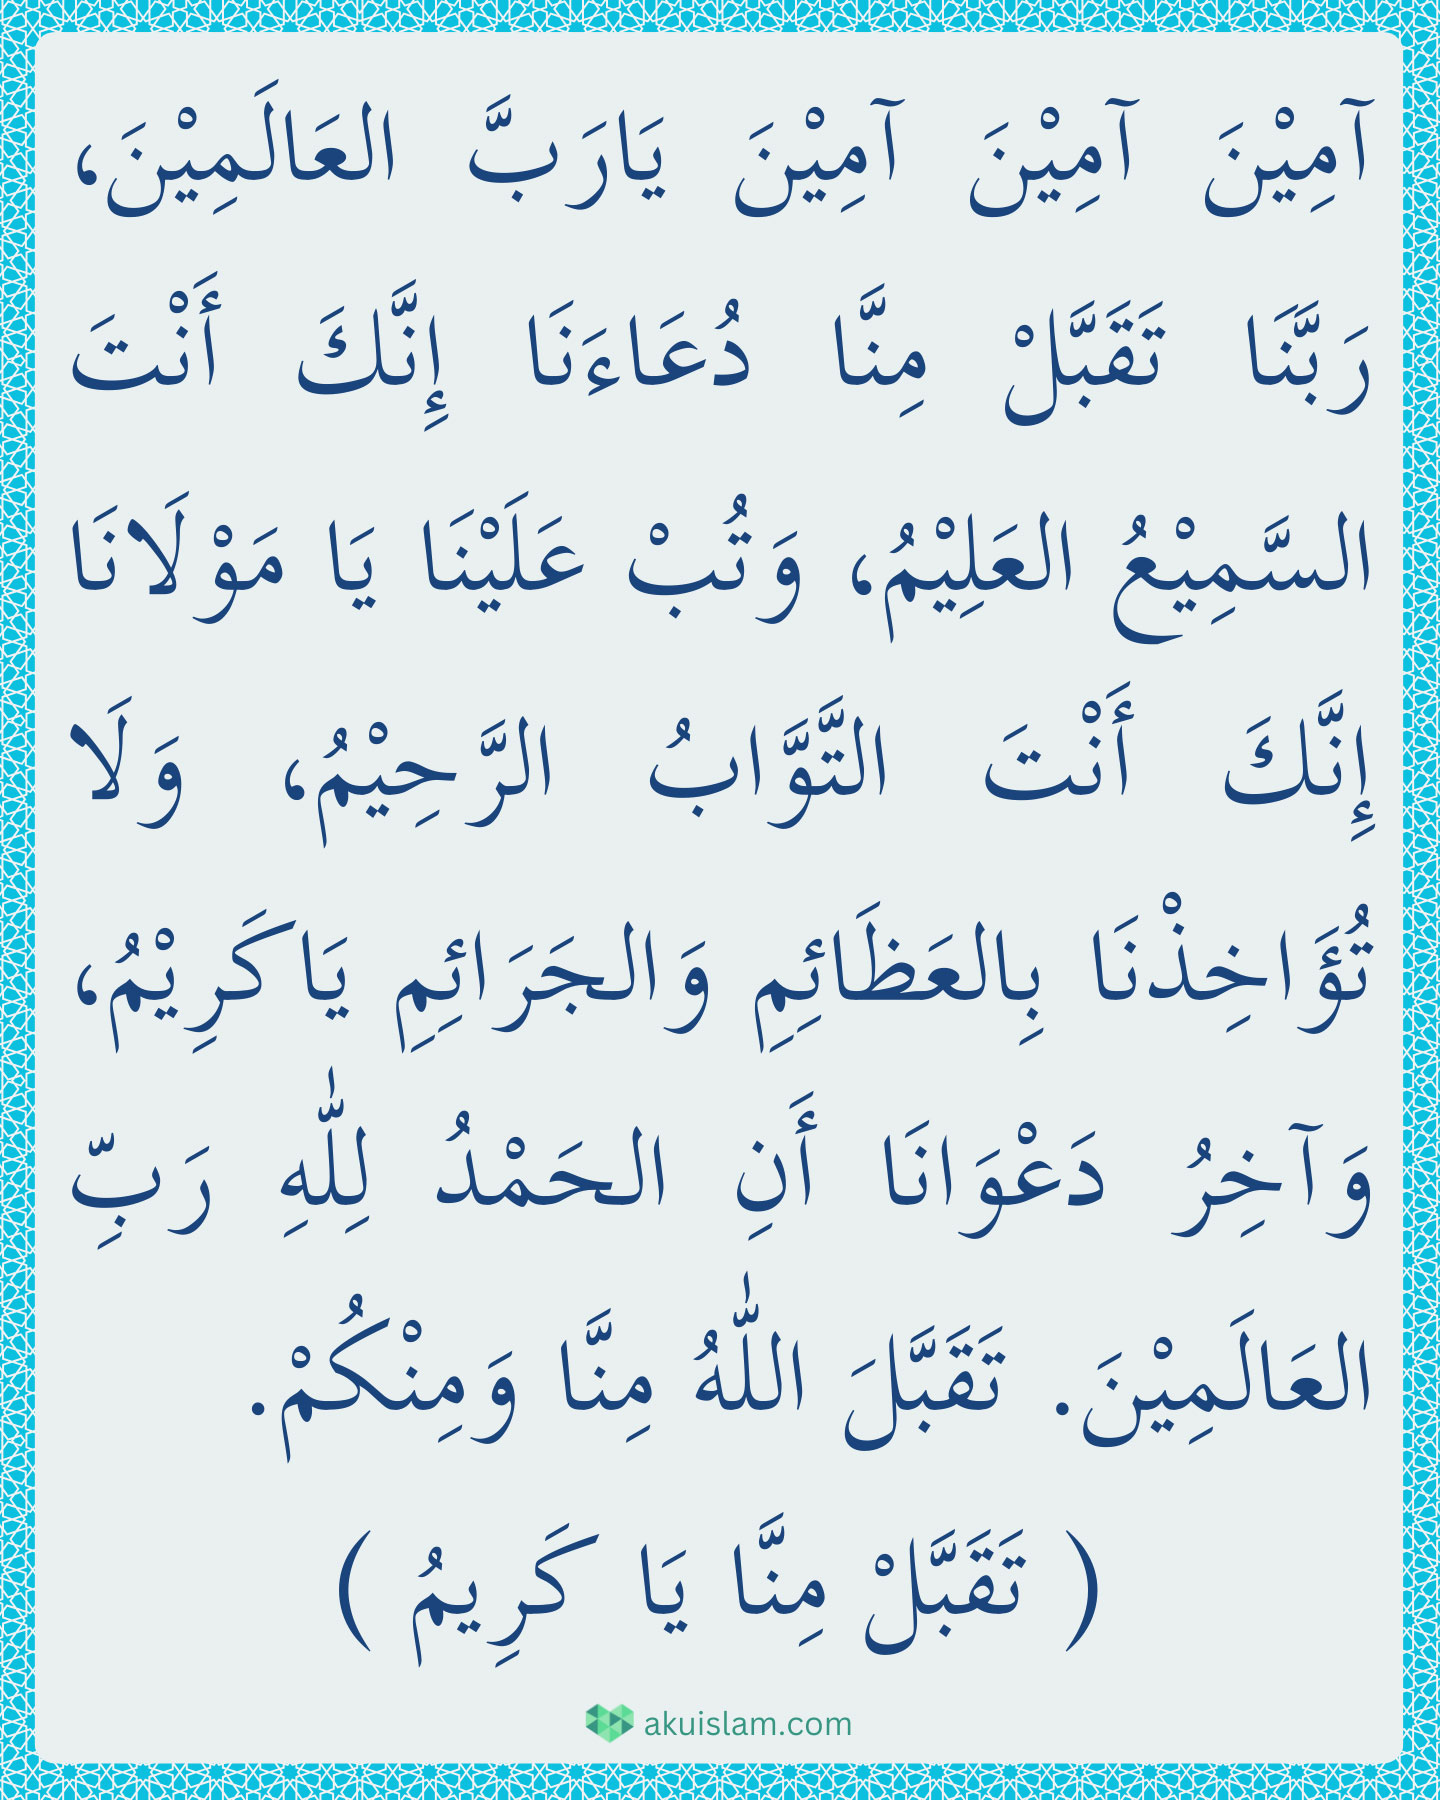 آمِيْنَ آمِيْنَ آمِيْنَ يَارَبَّ العَالَمِيْنَ،
رَبَّنَا تَقَبَّلْ مِنَّا دُعَاءَنَا إِنَّكَ أَنْتَ
السَّمِيْعُ العَلِيْمُ، وَتُبْ عَلَيْنَا يَا مَوْلَانَا
إِنَّكَ أَنْتَ التَّوَّابُ الرَّحِيْمُ، وَلَا
تُؤَاخِذْنَا بِالعَظَائِمِ وَالجَرَائِمِ يَاكَرِيْمُ،
وَآخِرُ دَعْوَانَا أَنِ الحَمْدُ لِلّٰهِ رَبِّ
العَالَمِيْنَ. تَقَبَّلَ اللّٰهُ مِنَّا وَمِنْكُمْ.
( تَقَبَّلْ مِنَّا يَا كَرِيمُ )
akuislam.com